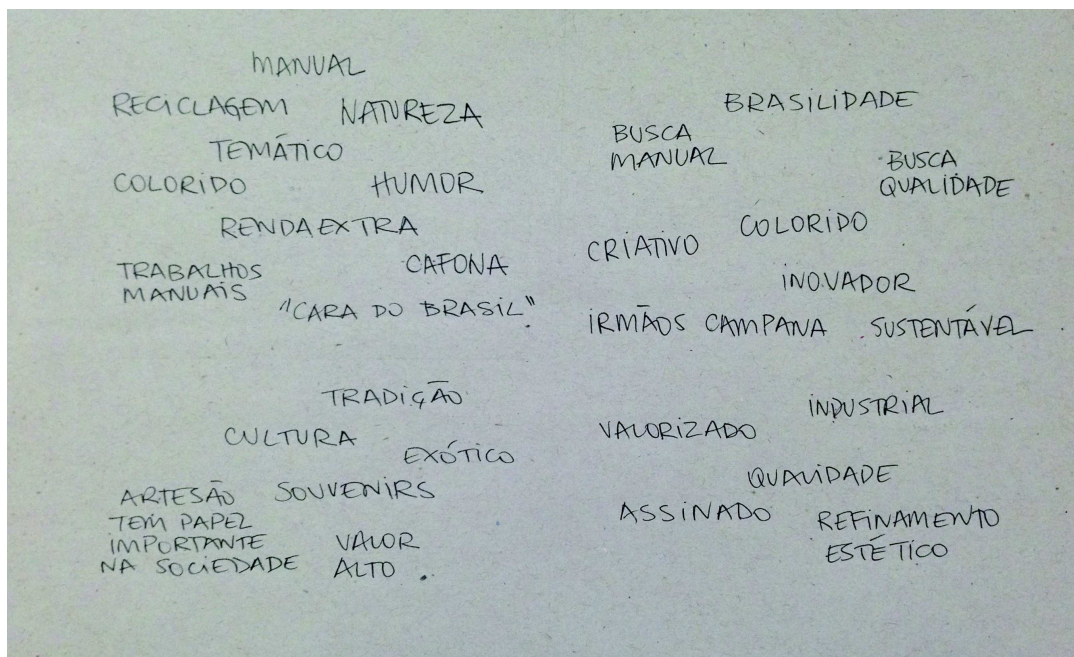 MANUAL
RECICLAGEM NATUREZA
TEMÁTICO
COLORIDO HUMOR
RENDA EXTRA
TRABALHOS
MANUAIS
CAFONA
"CARA DO BRASIL"
TRADIÇÃO
CULTURA
EXÓTICO
ARTESÃO
TEM PAPEL
IMPORTANTE
NA SOCIEDADE
SOUVENIRS
VALOR
ALTO
BRASILIDADE
BUSCA
MANUAL
BUSCA
QUALIDADE
COLORIDO
CRIATIVO
INOVADOR
IRMÃOS CAMPANA SUSTENTÁVEL
INDUSTRIAL
VALORIZADO
QUALIDADE
ASSINADO
REFINAMENTO
ESTÉTICO